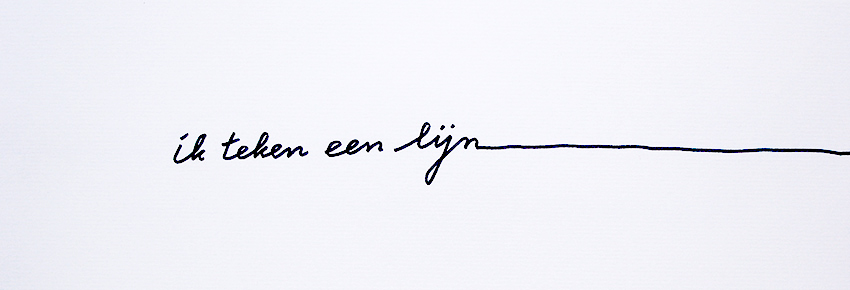 ik teken een lijn